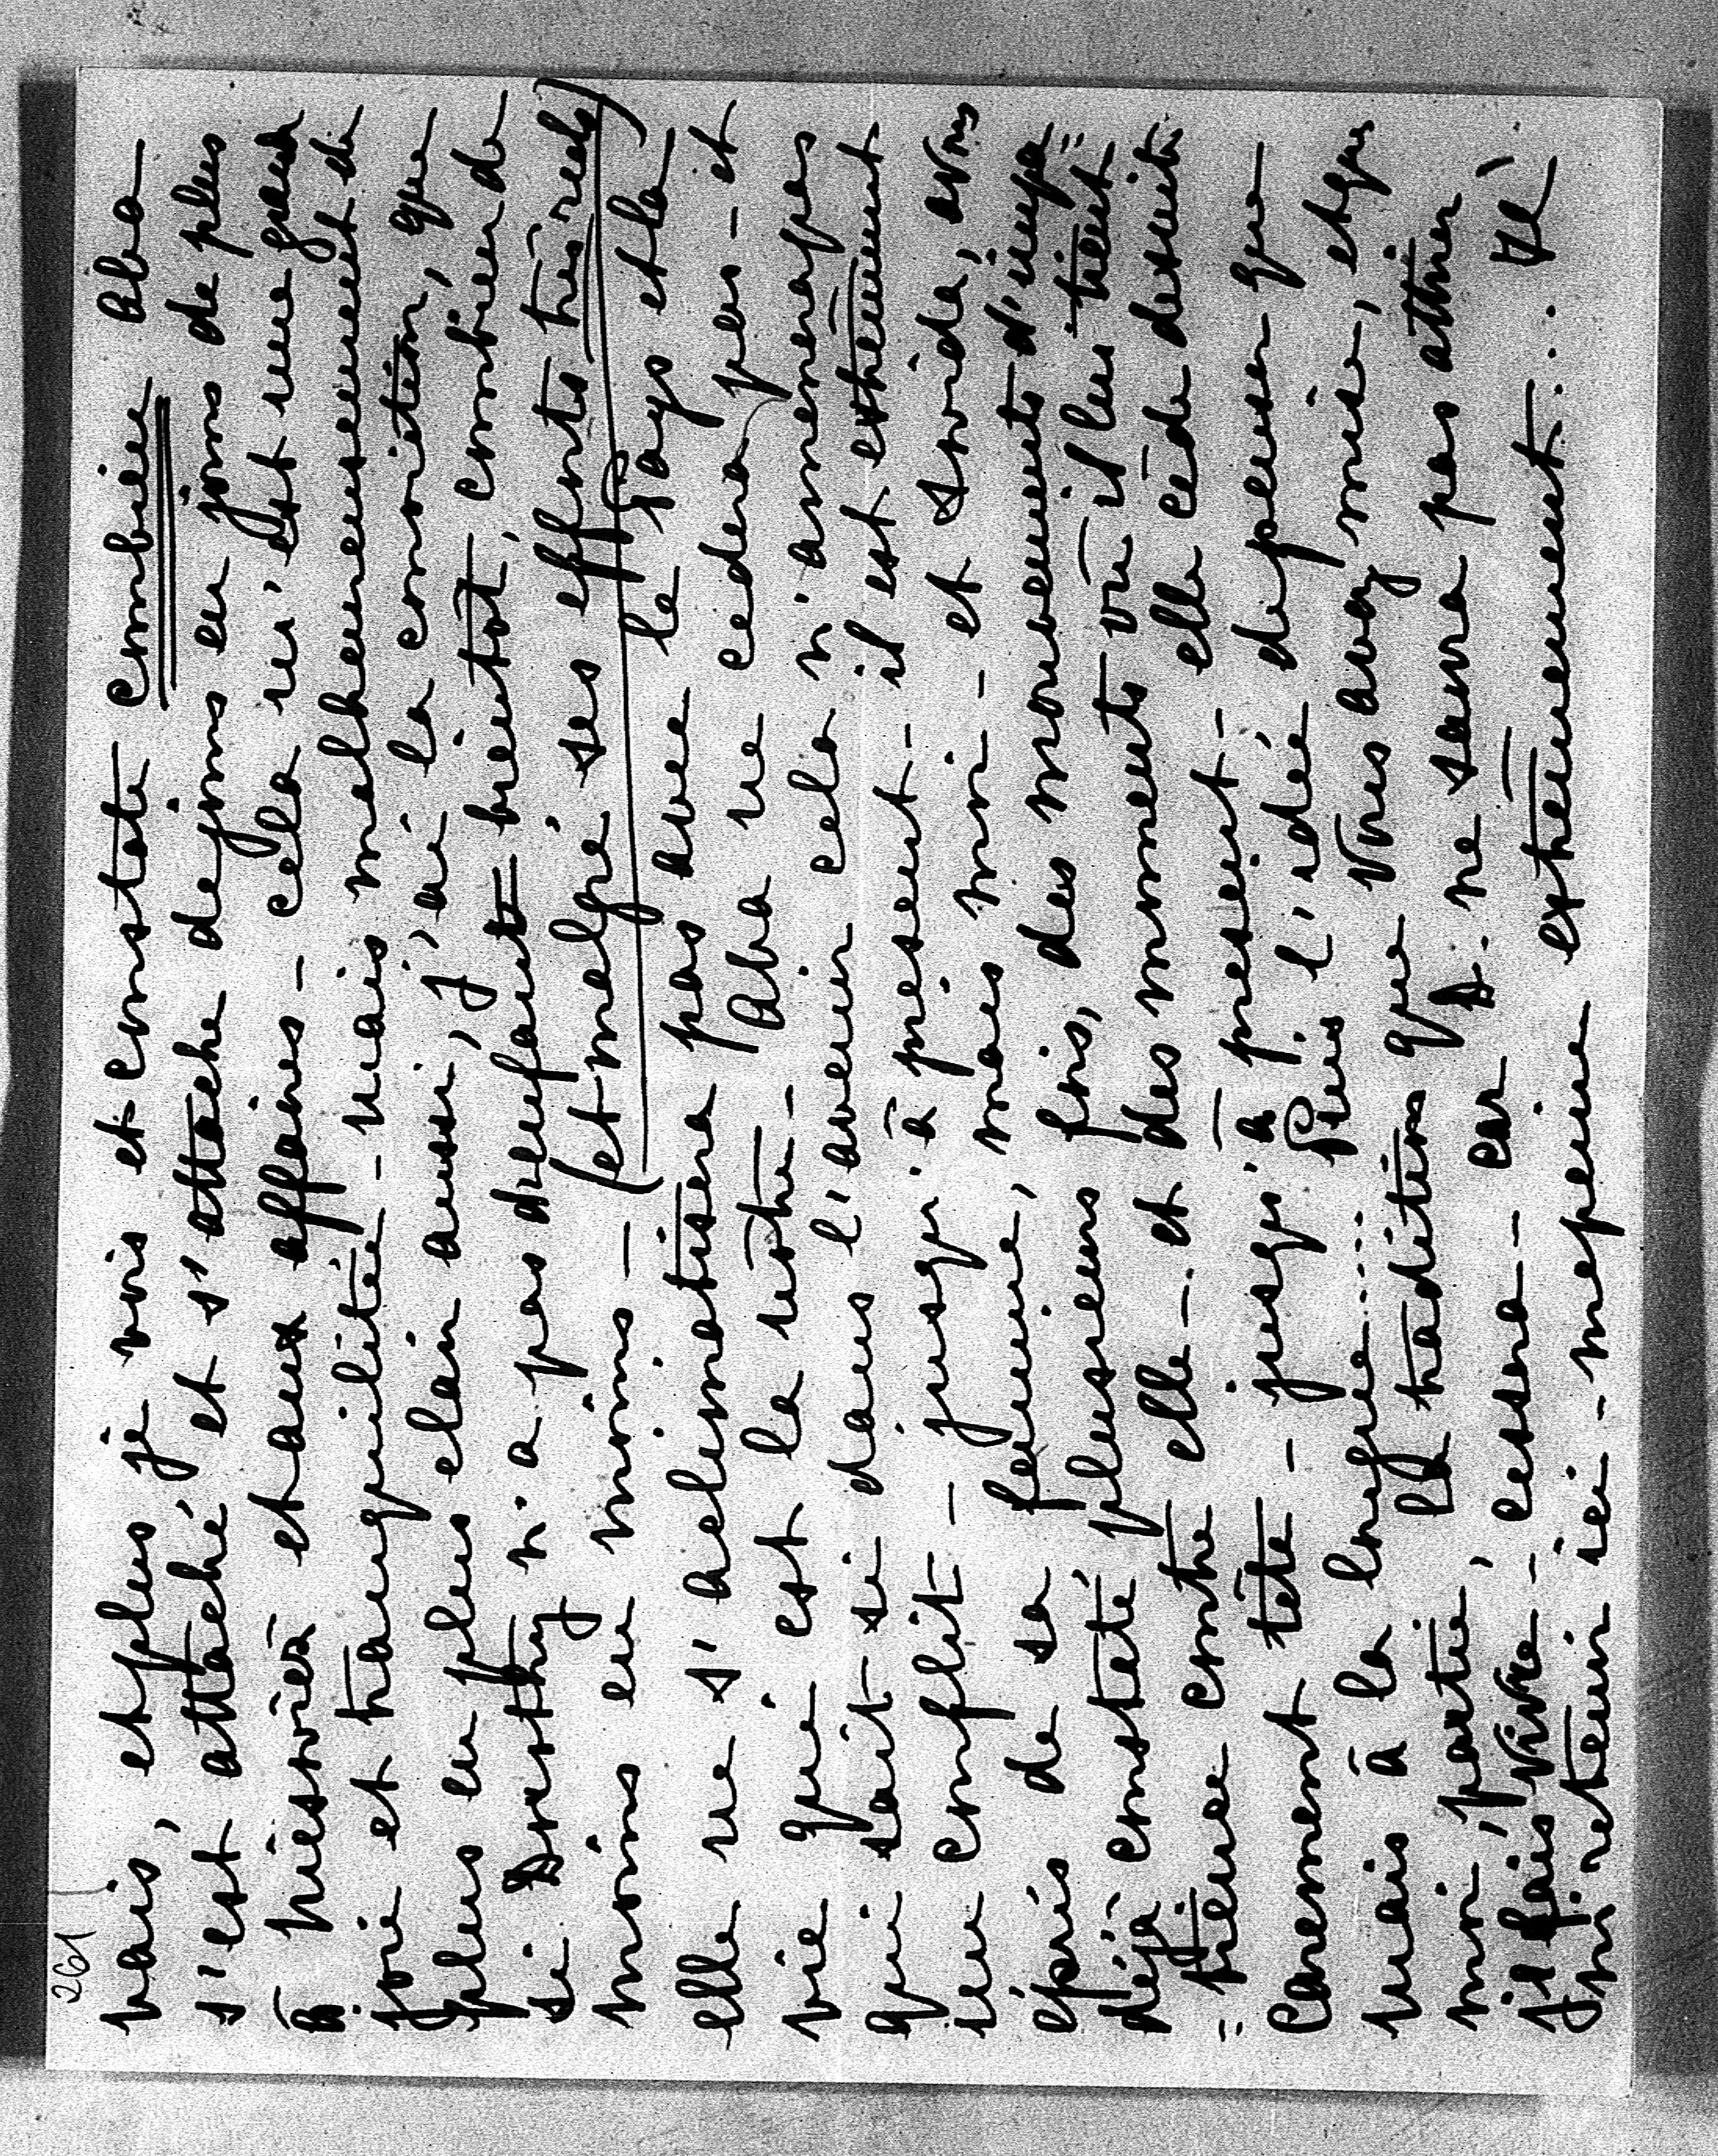 261
vais, et plus je vois et constate combien Aba
s'est attaché et s'attache de jour en jour de plus
à Miestwier et aux affaires - cella m'est une grande
joie et tranquilité - mais malheureusement di
plus en plus clair aussi, j'ai la conviction, que
si Drothy n'a pas dupfaut bientot, combien de
moins en moins - (et malgré ses efforts très reels)
elle ne s'aclimatisera pas avec le Pays et la
vie qui est la notre - Aba ne cedera pas - et
qui sait si dans l'avenir cela n'amenera pas
un conflit - jusqu'à present - il est extremement
épris de sa femme, mais moi - et Isvida, avons
déjà constaté plusieurs fois, des mouvements d'impa=
=tience contre elle - et des moments où il lui tient
carement tête - jusqu'à present - elle cède de suite
mais à la longue..... Puis l'idée de penser que
moi, partie, la tradition que Vous avez mise, et que
j'il fais vivre - cessera - car D. ne saura pas attirer
ni retenir ici - me peine extremement.... Il